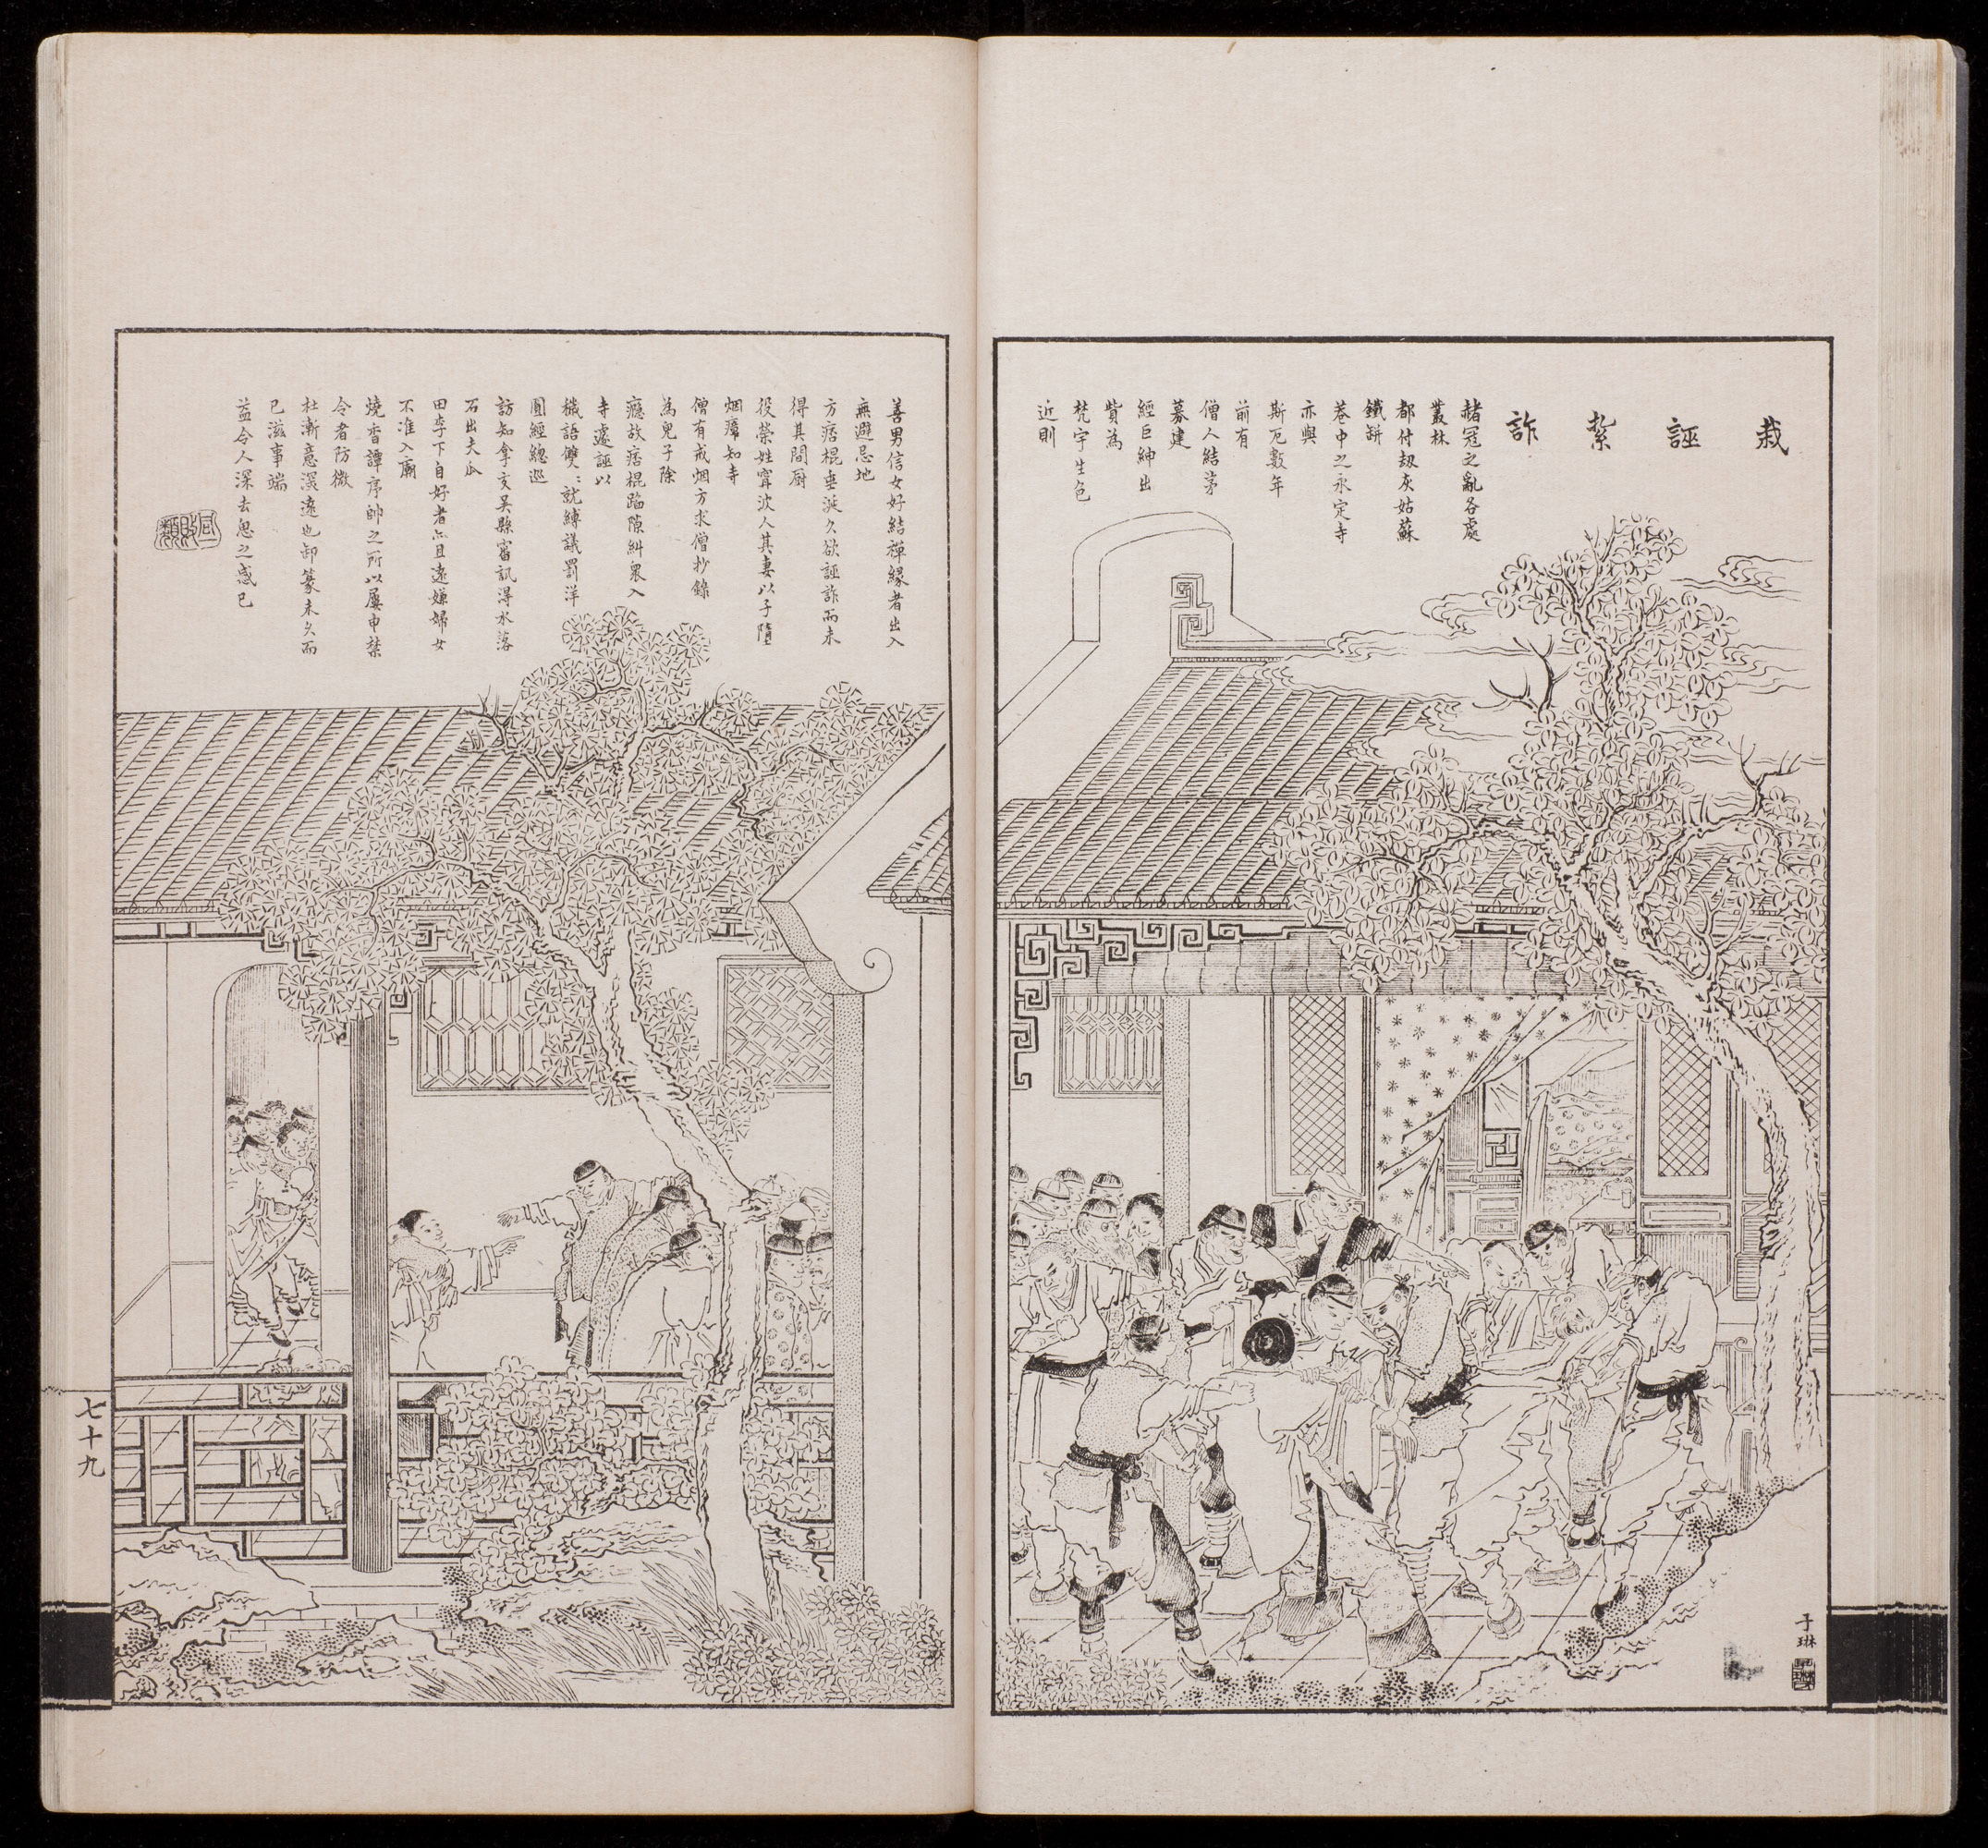 栽誣紮詐
赭冦之亂各處
叢林
都付刼灰姑蘇
鐵缾
巷中之永定寺
亦與
斯厄數年
前有
僧人結茅
募建
經巨紳出
貲為
梵宇生色
近則
善男信女好結禪緣者出入
無避忌地
方痞棍垂涎久欲誣詐而未
得其間厨
役榮姓甯波人其妻以子隨
烟癮知寺
僧有戒烟方求僧抄錄
為兒子除
癮故痞棍蹈隙糾衆入
寺遽誣以
穢語雙〻就縛議罰洋
圓經總巡
訪知拿交吳縣審訊得水落
石出夫瓜
田李下自好者亦且遠嫌婦女
不准入廟
燒香譚序帥之所以屢申禁
令者防微
杜漸意深遠也卸篆未久而
已滋事端
益令人深去思之感已
子琳
七十九